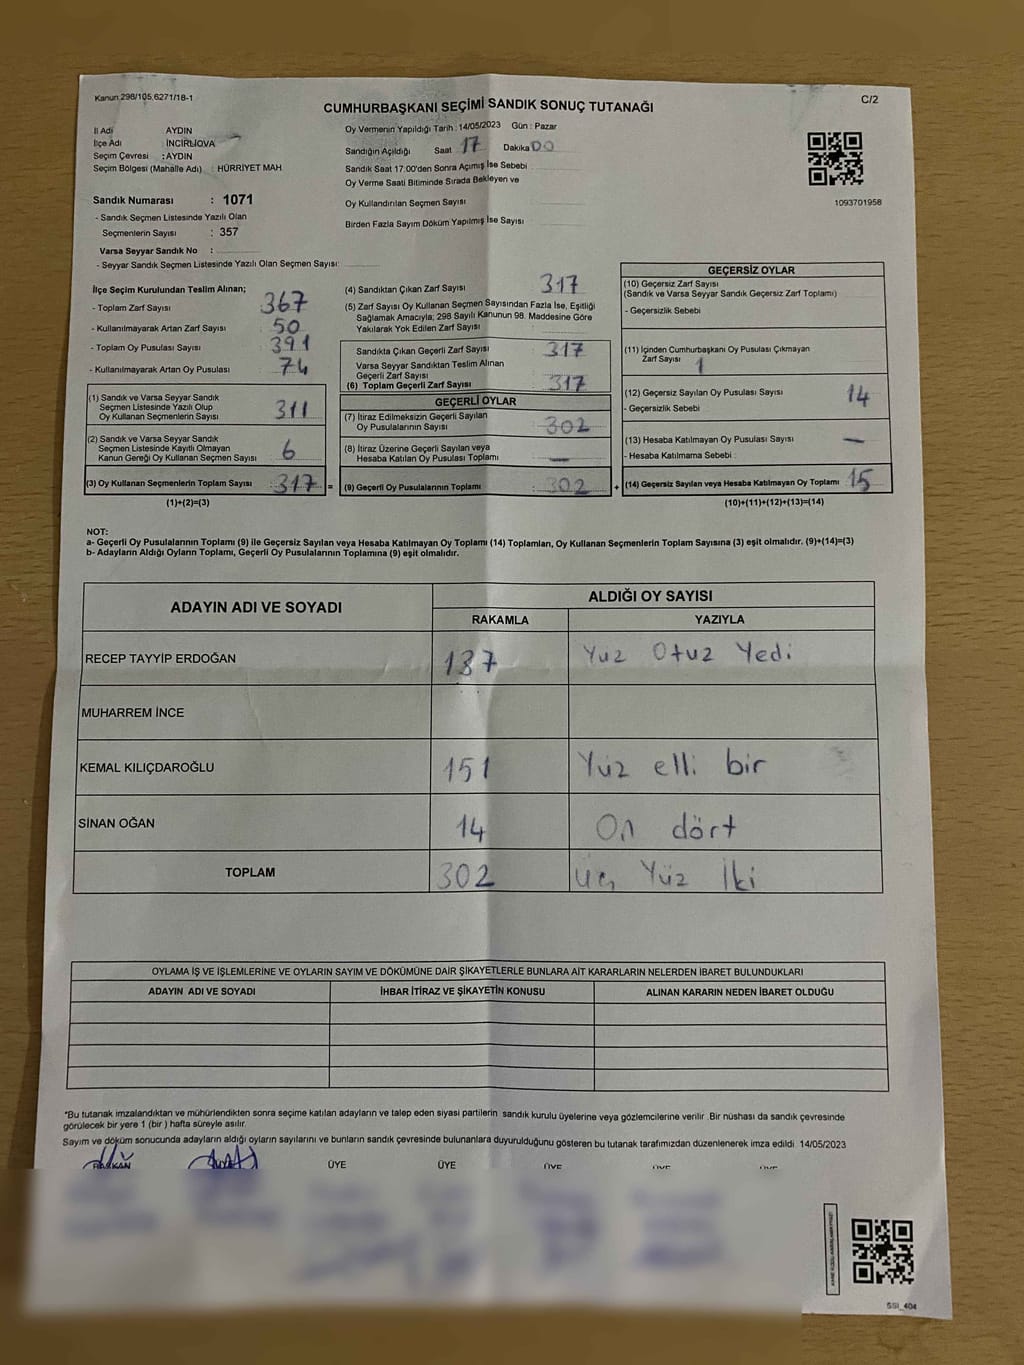 Kanun 298/105,6271/18-1
C/2
CUMHURBAŞKANI SEÇİMİ SANDIK SONUÇ TUTANAĞI
İl Adı AYDIN
İlçe Adı İNCİRLİOVA
Seçim Çevresi : AYDIN
Seçim Bölgesi (Mahalle Adı) : HÜRRİYET MAH
Sandık Numarası : 1071
- Sandık Seçmen Listesinde Yazılı Olan
Seçmenlerin Sayısı : 357
Varsa Seyyar Sandık No :
- Seyyar Sandık Seçmen Listesinde Yazılı Olan Seçmen Sayısı:
Oy Vermenin Yapıldığı Tarih : 14/05/2023 Gün : Pazar
Sandığın Açıldığı Saat 17 Dakika 00
Sandık Saat 17:00'den Sonra Açımış İse Sebebi
Oy Verme Saati Bitiminde Sırada Bekleyen ve
Oy Kullandırılan Seçmen Sayısı
Birden Fazla Sayım Döküm Yapılmış İse Sayısı
1093701958
İlçe Seçim Kurulundan Teslim Alınan;
- Toplam Zarf Sayısı 367
- Kullanılmayarak Artan Zarf Sayısı 50
- Toplam Oy Pusulası Sayısı 391
- Kullanılmayarak Artan Oy Pusulası 74
(1) Sandık ve Varsa Seyyar Sandık
Seçmen Listesinde Yazılı Olup
Oy Kullanan Seçmenlerin Sayısı 311
(2) Sandık ve Varsa Seyyar Sandık
Seçmen Listesinde Kayıtlı Olmayan
Kanun Gereği Oy Kullanan Seçmen Sayısı 6
(3) Oy Kullanan Seçmenlerin Toplam Sayısı : 317 =
(1)+(2)=(3)
(4) Sandıktan Çıkan Zarf Sayısı 317
(5) Zarf Sayısı Oy Kullanan Seçmen Sayısından Fazla İse, Eşitliği
Sağlamak Amacıyla; 298 Sayılı Kanunun 98. Maddesine Göre
Yakılarak Yok Edilen Zarf Sayısı
Sandıkta Çıkan Geçerli Zarf Sayısı 317
Varsa Seyyar Sandıktan Teslim Alınan
Geçerli Zarf Sayısı
(6) Toplam Geçerli Zarf Sayısı : 317
GEÇERLİ OYLAR
(7) İtiraz Edilmeksizin Geçerli Sayılan
Oy Pusulalarının Sayısı : 302
(8) İtiraz Üzerine Geçerli Sayılan veya
Hesaba Katılan Oy Pusulası Toplamı : —
(9) Geçerli Oy Pusulalarının Toplamı : 302 +
GEÇERSİZ OYLAR
(10) Geçersiz Zarf Sayısı
(Sandık ve Varsa Seyyar Sandık Geçersiz Zarf Toplamı)
- Geçersizlik Sebebi
(11) İçinden Cumhurbaşkanı Oy Pusulası Çıkmayan
Zarf Sayısı 1
(12) Geçersiz Sayılan Oy Pusulası Sayısı 14
- Geçersizlik Sebebi
(13) Hesaba Katılmayan Oy Pusulası Sayısı —
- Hesaba Katılmama Sebebi :
(14) Geçersiz Sayılan veya Hesaba Katılmayan Oy Toplamı 15
(10)+(11)+(12)+(13)=(14)
NOT:
a- Geçerli Oy Pusulalarının Toplamı (9) ile Geçersiz Sayılan veya Hesaba Katılmayan Oy Toplamı (14) Toplamları, Oy Kullanan Seçmenlerin Toplam Sayısına (3) eşit olmalıdır. (9)+(14)=(3)
b- Adayların Aldığı Oyların Toplamı, Geçerli Oy Pusulalarının Toplamına (9) eşit olmalıdır.
ADAYIN ADI VE SOYADI ALDIĞI OY SAYISI
RAKAMLA YAZIYLA
RECEP TAYYİP ERDOĞAN 137 Yuz Otuz Yedi
MUHARREM İNCE
KEMAL KILIÇDAROĞLU 151 Yüz elli bir
SİNAN OĞAN 14 On dört
TOPLAM 302 üç Yüz İki
OYLAMA İŞ VE İŞLEMLERİNE VE OYLARIN SAYIM VE DÖKÜMÜNE DAİR ŞİKAYETLERLE BUNLARA AİT KARARLARIN NELERDEN İBARET BULUNDUKLARI
ADAYIN ADI VE SOYADI İHBAR İTİRAZ VE ŞİKAYETİN KONUSU ALINAN KARARIN NEDEN İBARET OLDUĞU
*Bu tutanak imzalandıktan ve mühürlendikten sonra seçime katılan adayların ve talep eden siyasi partilerin sandık kurulu üyelerine veya gözlemcilerine verilir .Bir nüshası da sandık çevresinde
görülecek bir yere 1 (bir ) hafta süreyle asılır.
Sayım ve döküm sonucunda adayların aldığı oyların sayılarını ve bunların sandık çevresinde bulunanlara duyurulduğunu gösteren bu tutanak tarafımızdan düzenlenerek imza edildi 14/05/2023
BAŞKAN ÜYE ÜYE ÜYE ÜYE ÜYE
SSI_404